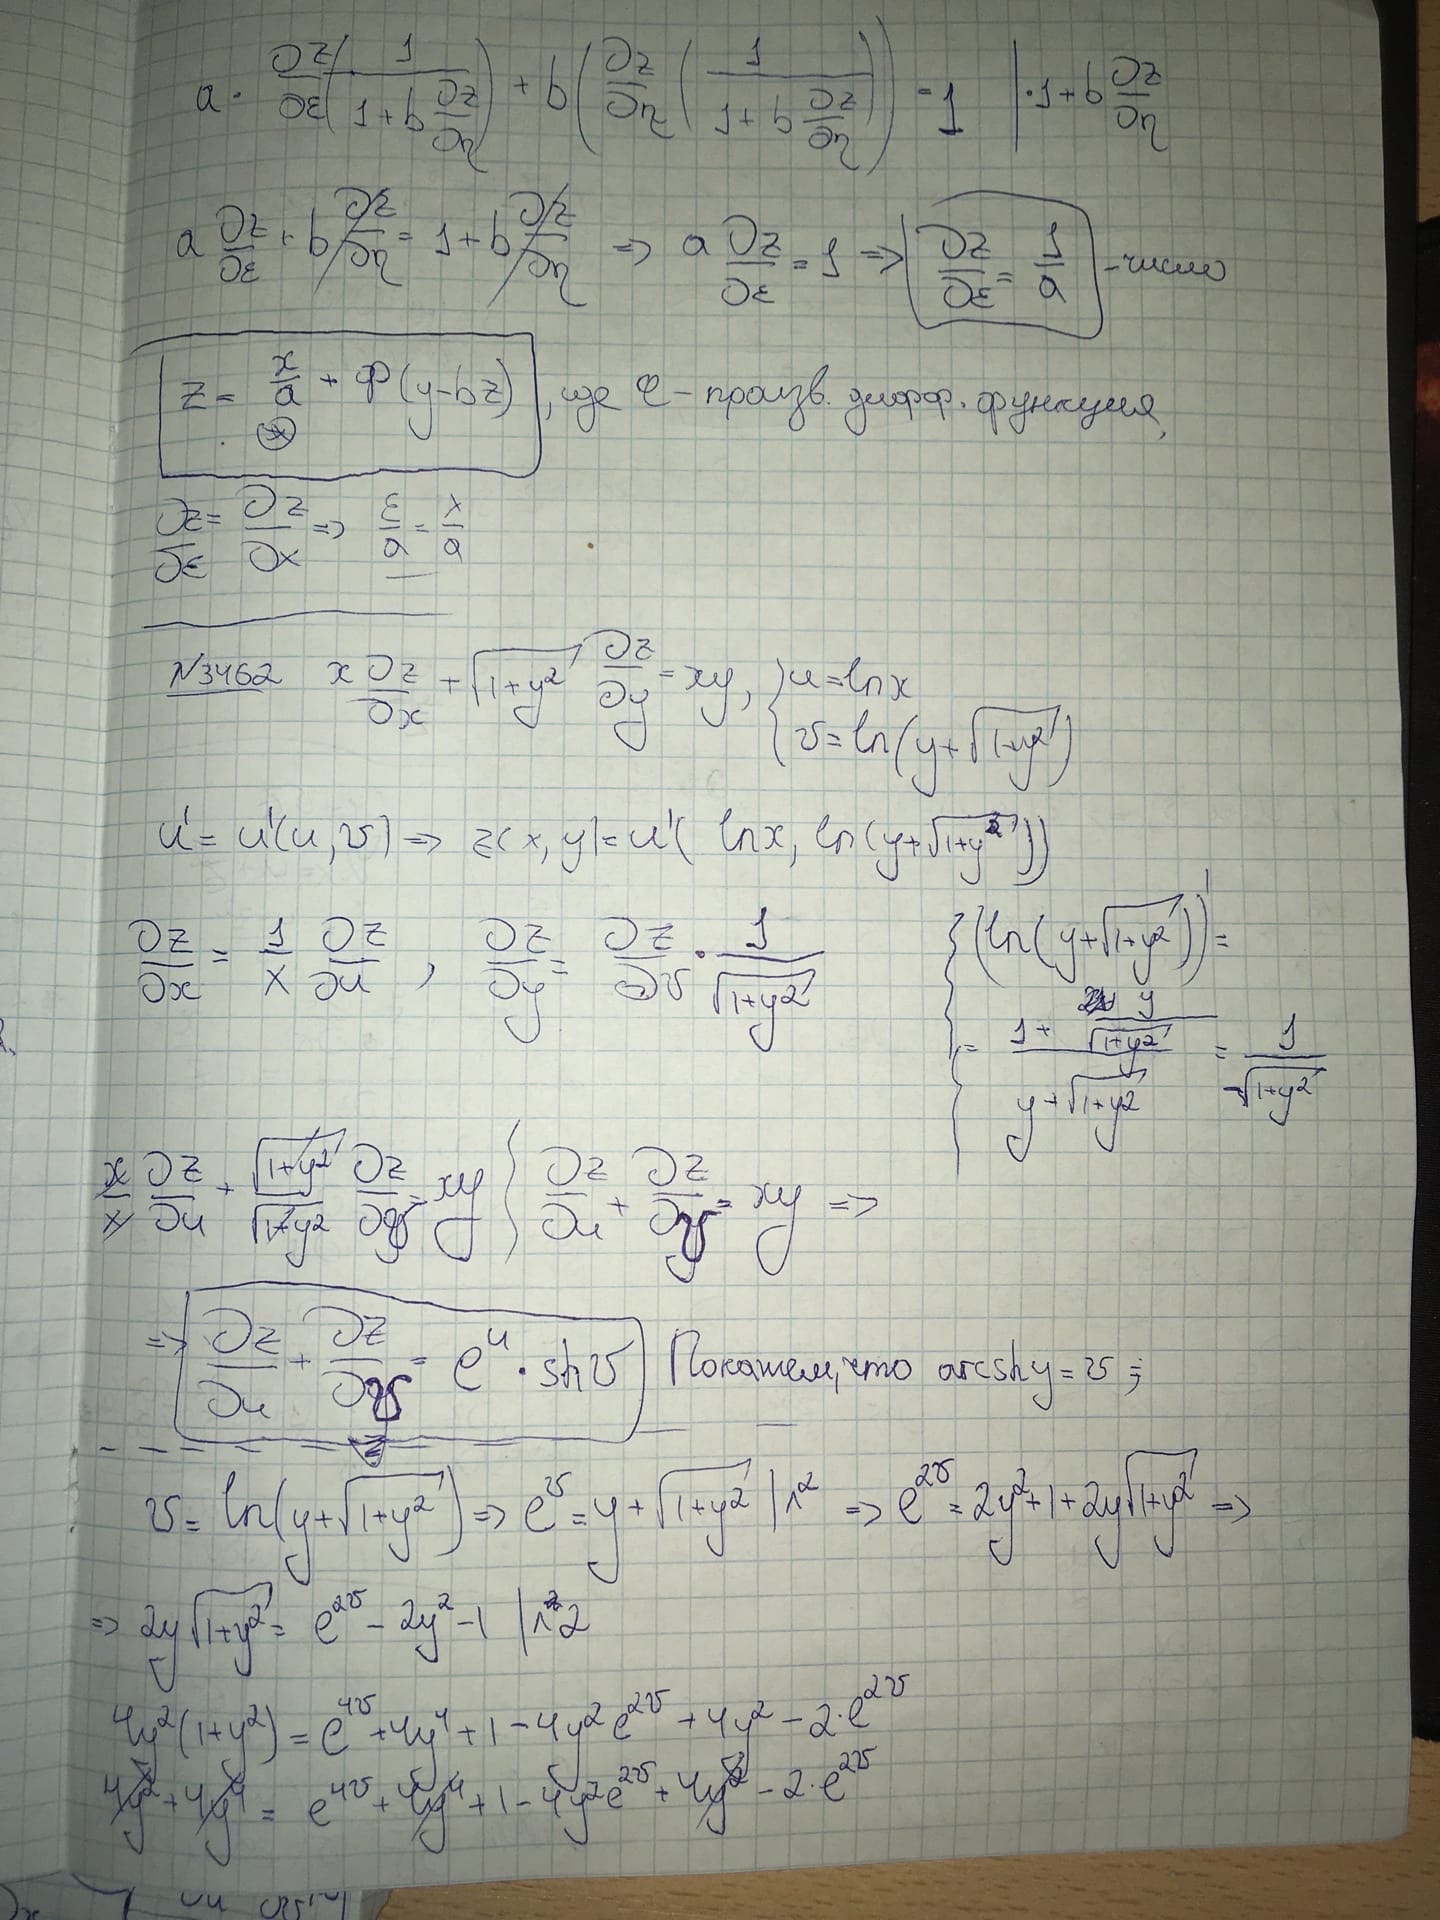 a · ∂z/∂ε (1/(1+b ∂z/∂η)) + b(∂z/∂η (1/(1+b ∂z/∂η))) = 1 | · 1+b ∂z/∂η
a ∂z/∂ε + b ∂z/∂η = 1+b ∂z/∂η => a ∂z/∂ε = 1 => ∂z/∂ε = 1/a - число
z = x/a + φ(y-bz), где φ - произв. дифф. функция,
∂z/∂ε = ∂z/∂x => ε/a = x/a
N3462 x ∂z/∂x + √(1+y²) ∂z/∂y = xy, { u = ln x
v = ln(y+√(1+y²))
u' = u'(u, v) => z(x, y) = u'(ln x, ln(y+√(1+y²)))
∂z/∂x = 1/x ∂z/∂u , ∂z/∂y = ∂z/∂v · 1/√(1+y²) { (ln(y+√(1+y²)))' =
= (1 + y/√(1+y²))/(y+√(1+y²)) = 1/√(1+y²)
x/x ∂z/∂u + √(1+y²)/√(1+y²) ∂z/∂v = xy } ∂z/∂u + ∂z/∂v = xy =>
=> ∂z/∂u + ∂z/∂v = e^u · sh v Покажем, что arcsh y = v ;
v = ln(y+√(1+y²)) => e^v = y+√(1+y²) |^2 => e^2v = 2y²+1+2y√(1+y²) =>
=> 2y√(1+y²) = e^2v - 2y² - 1 |^2
4y²(1+y²) = e^4v + 4y⁴ + 1 - 4y²e^2v + 4y² - 2·e^2v
4y² + 4y⁴ = e^4v + 4y⁴ + 1 - 4y²e^2v + 4y² - 2·e^2v